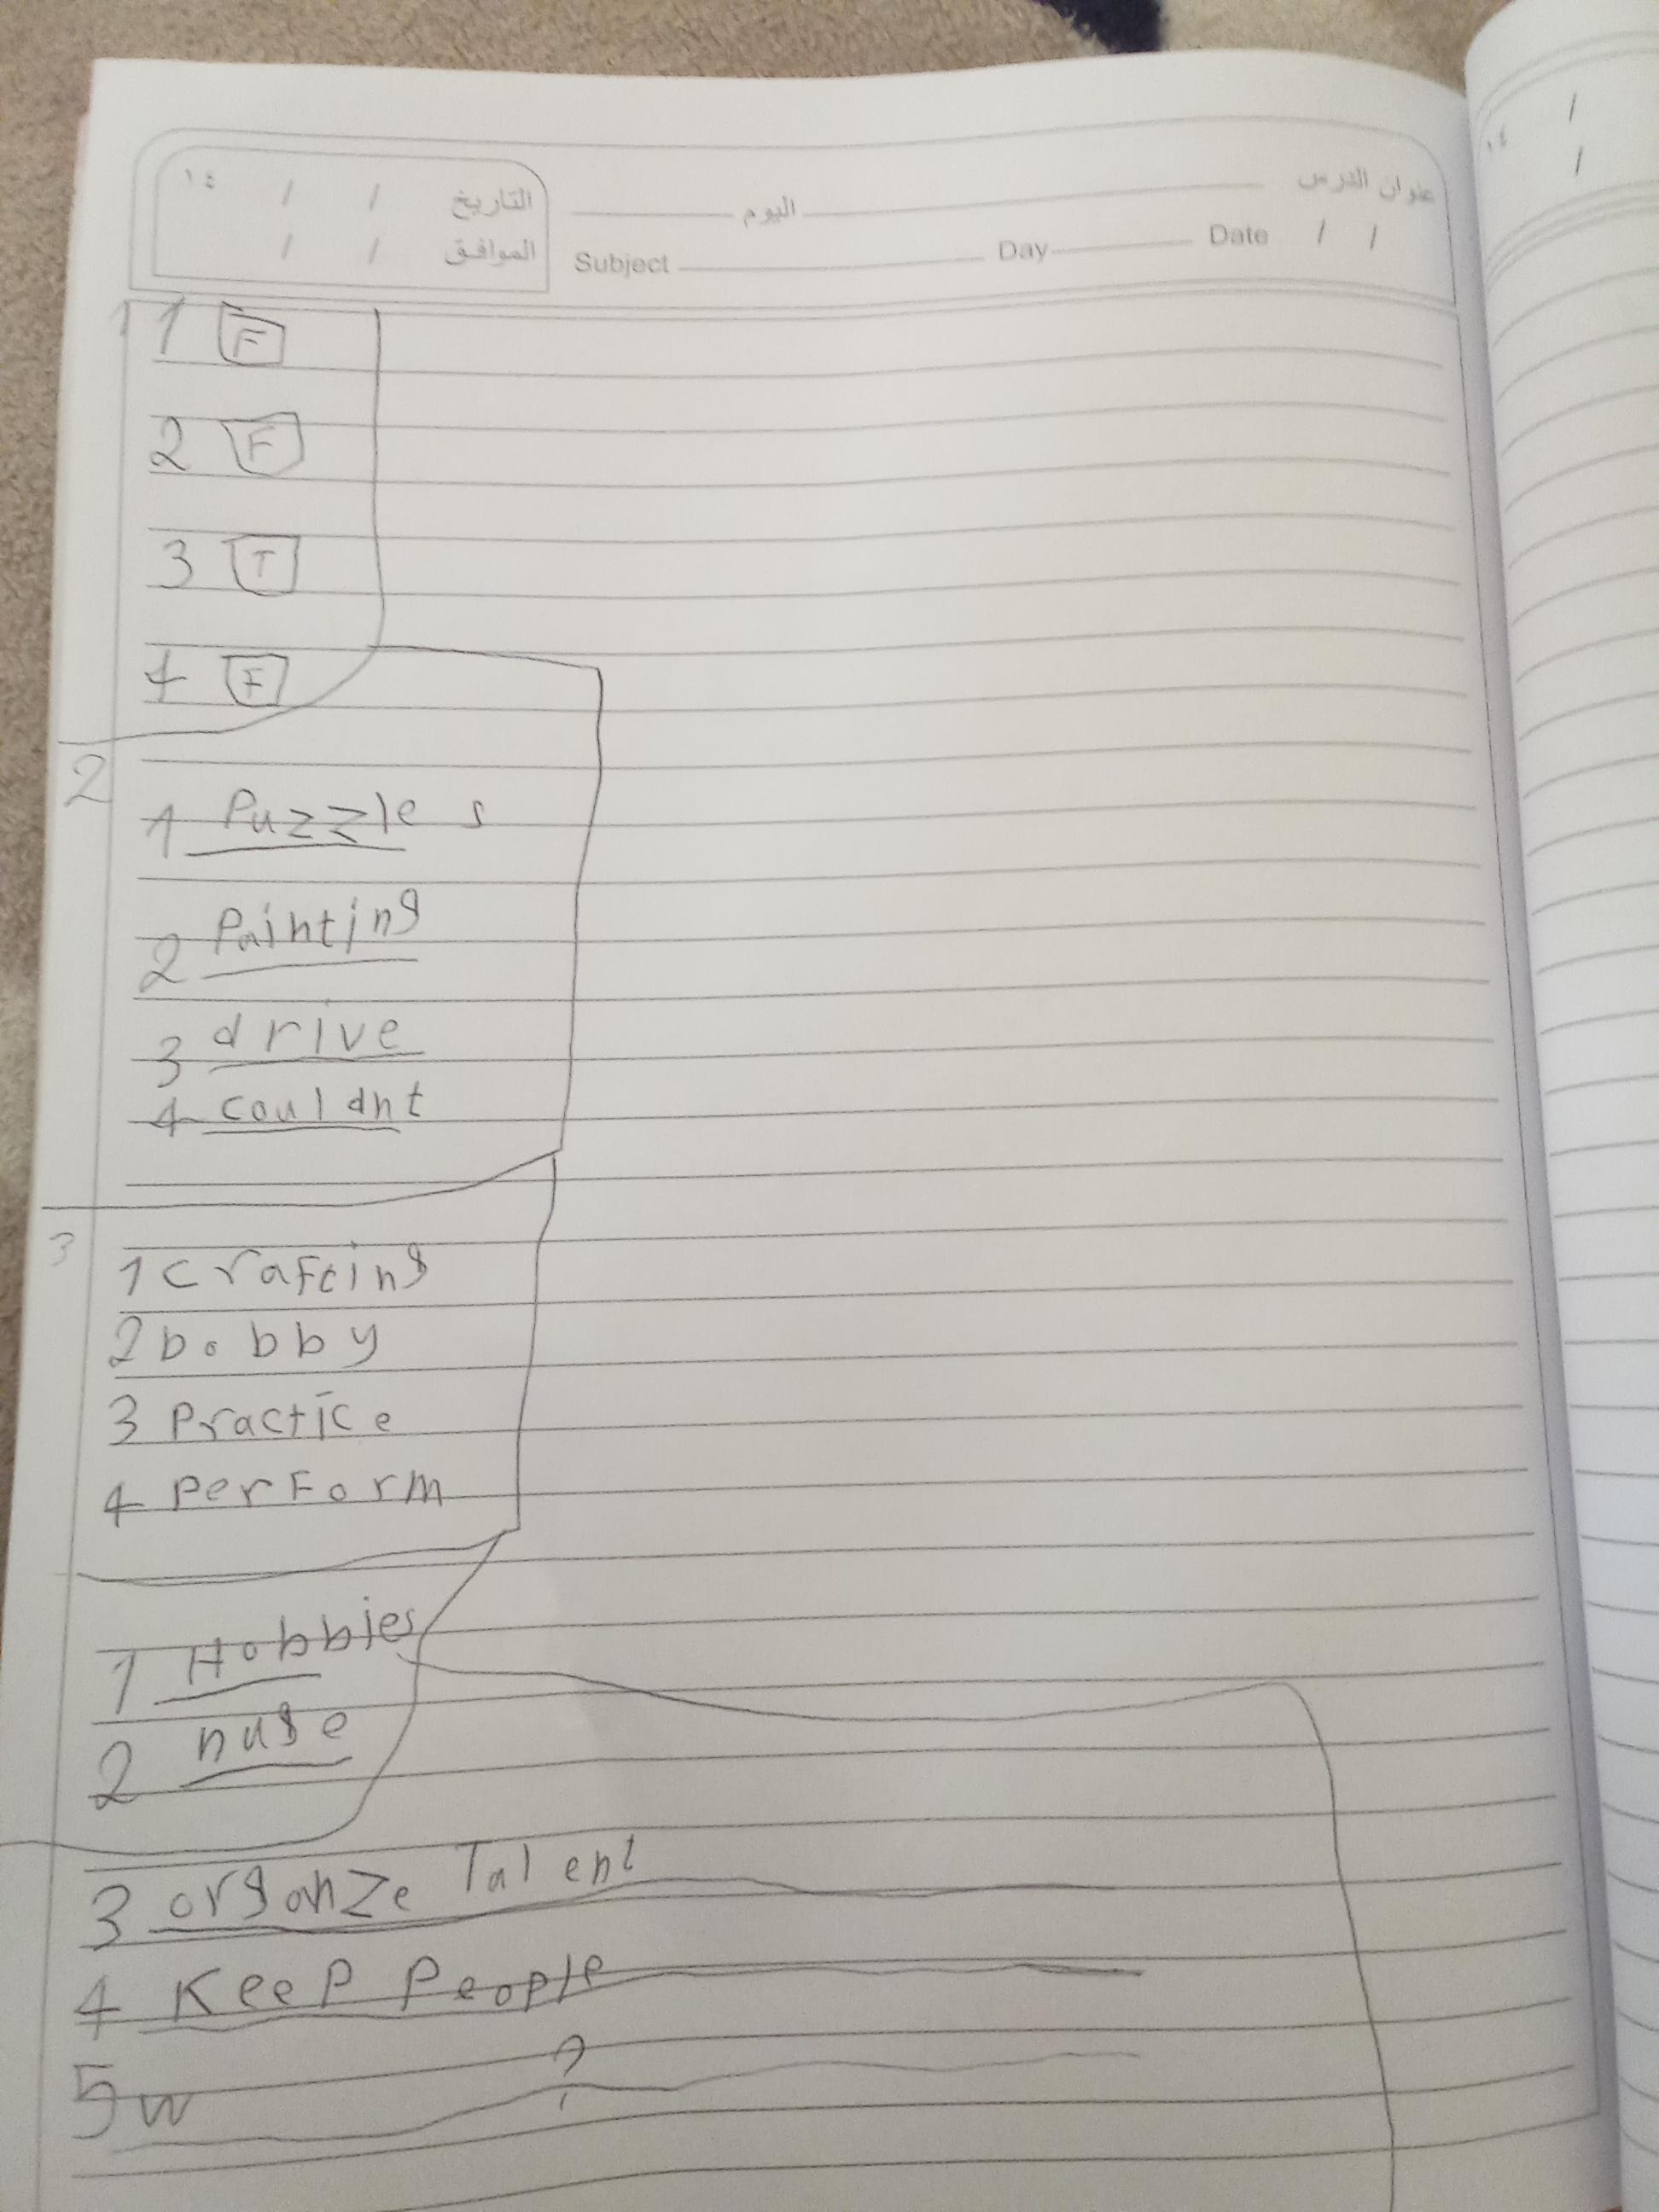 عنوان الدرس اليوم التاريخ / / ١٤
Subject Day Date / / الموافق / /
1
1 F
2 F
3 T
4 F
2
1 Puzzles
2 Painting
3 drive
4 couldnt
3
1 crafting
2 bobby
3 Practice
4 PerForm
1 Hobbies
2 huge
3 organze Talent
4 KeeP PeoPle
5 w ?